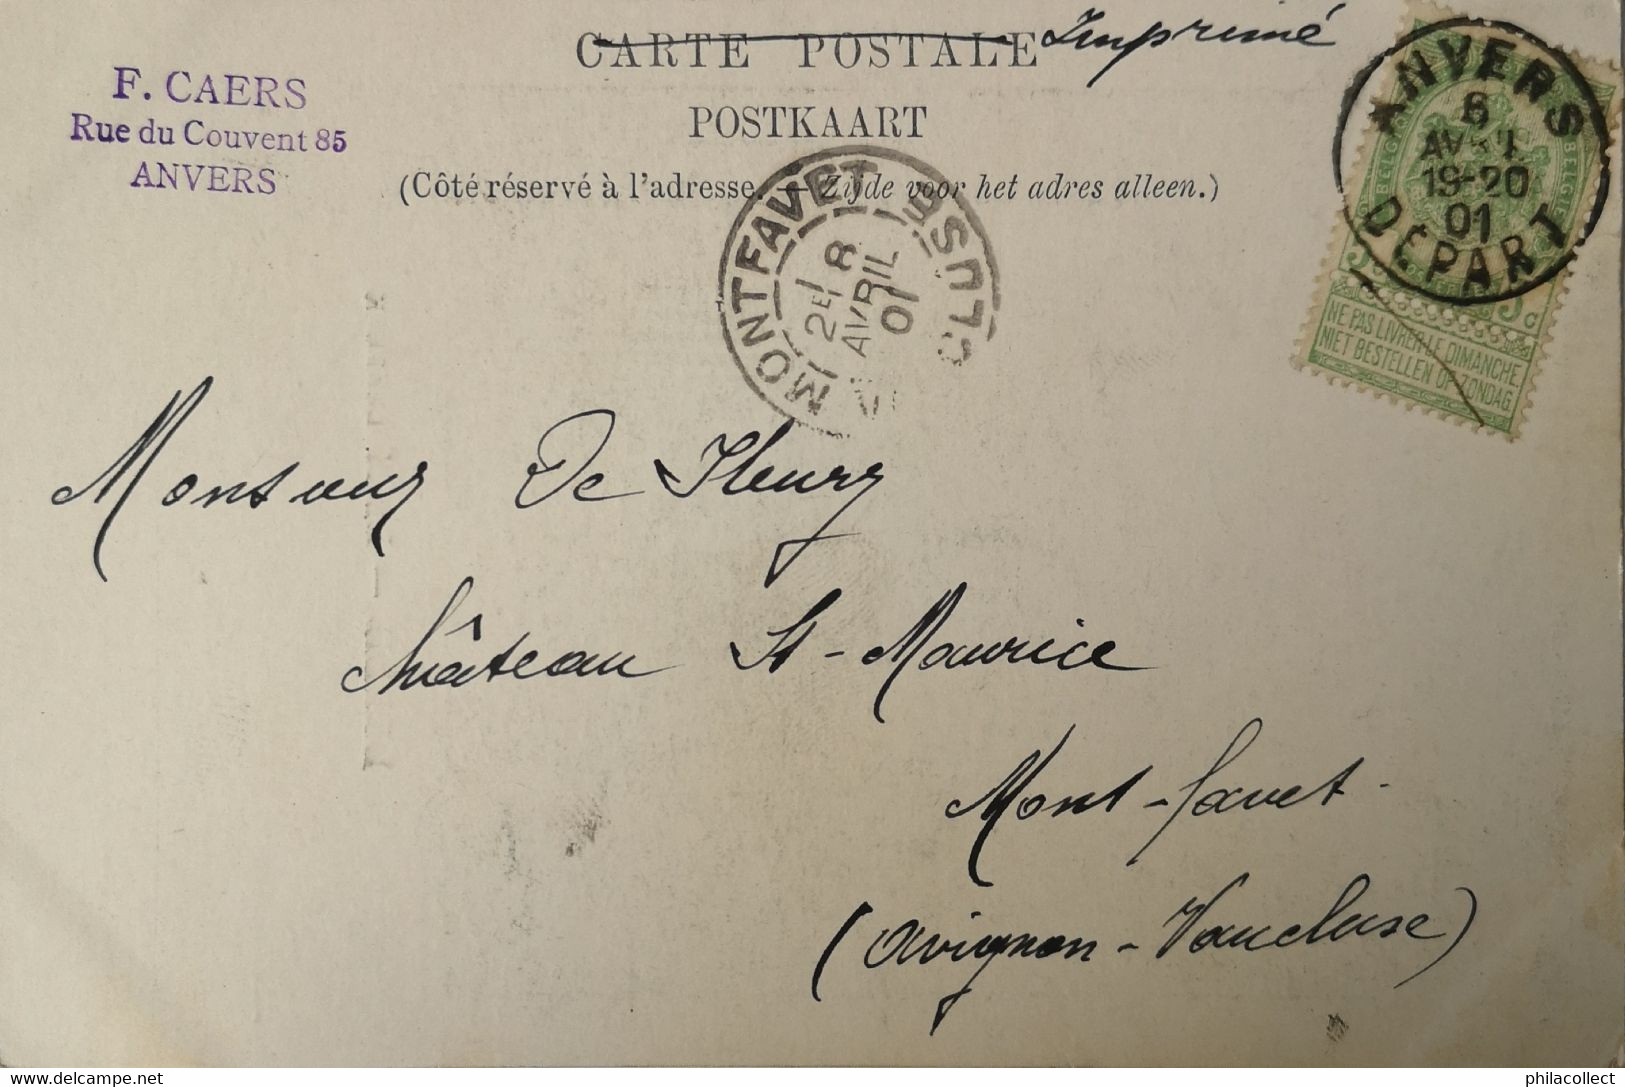 CARTE POSTALE Imprimé
F. CAERS
Rue du Couvent 85
ANVERS
POSTKAART
(Côté réservé à l'adresse. — Zijde voor het adres alleen.)
ANVERS
6
AVRIL
19-20
01
DÉPART
BELGIQUE BELGIË
5c 5c
NE PAS LIVRER LE DIMANCHE
NIET BESTELLEN OP ZONDAG
MONTFAVET VAUCLUSE
2E
8
AVRIL
01
Monsieur De Fleury
Château St-Maurice
Mont-favet-
(Avignon-Vaucluse)
philacollect